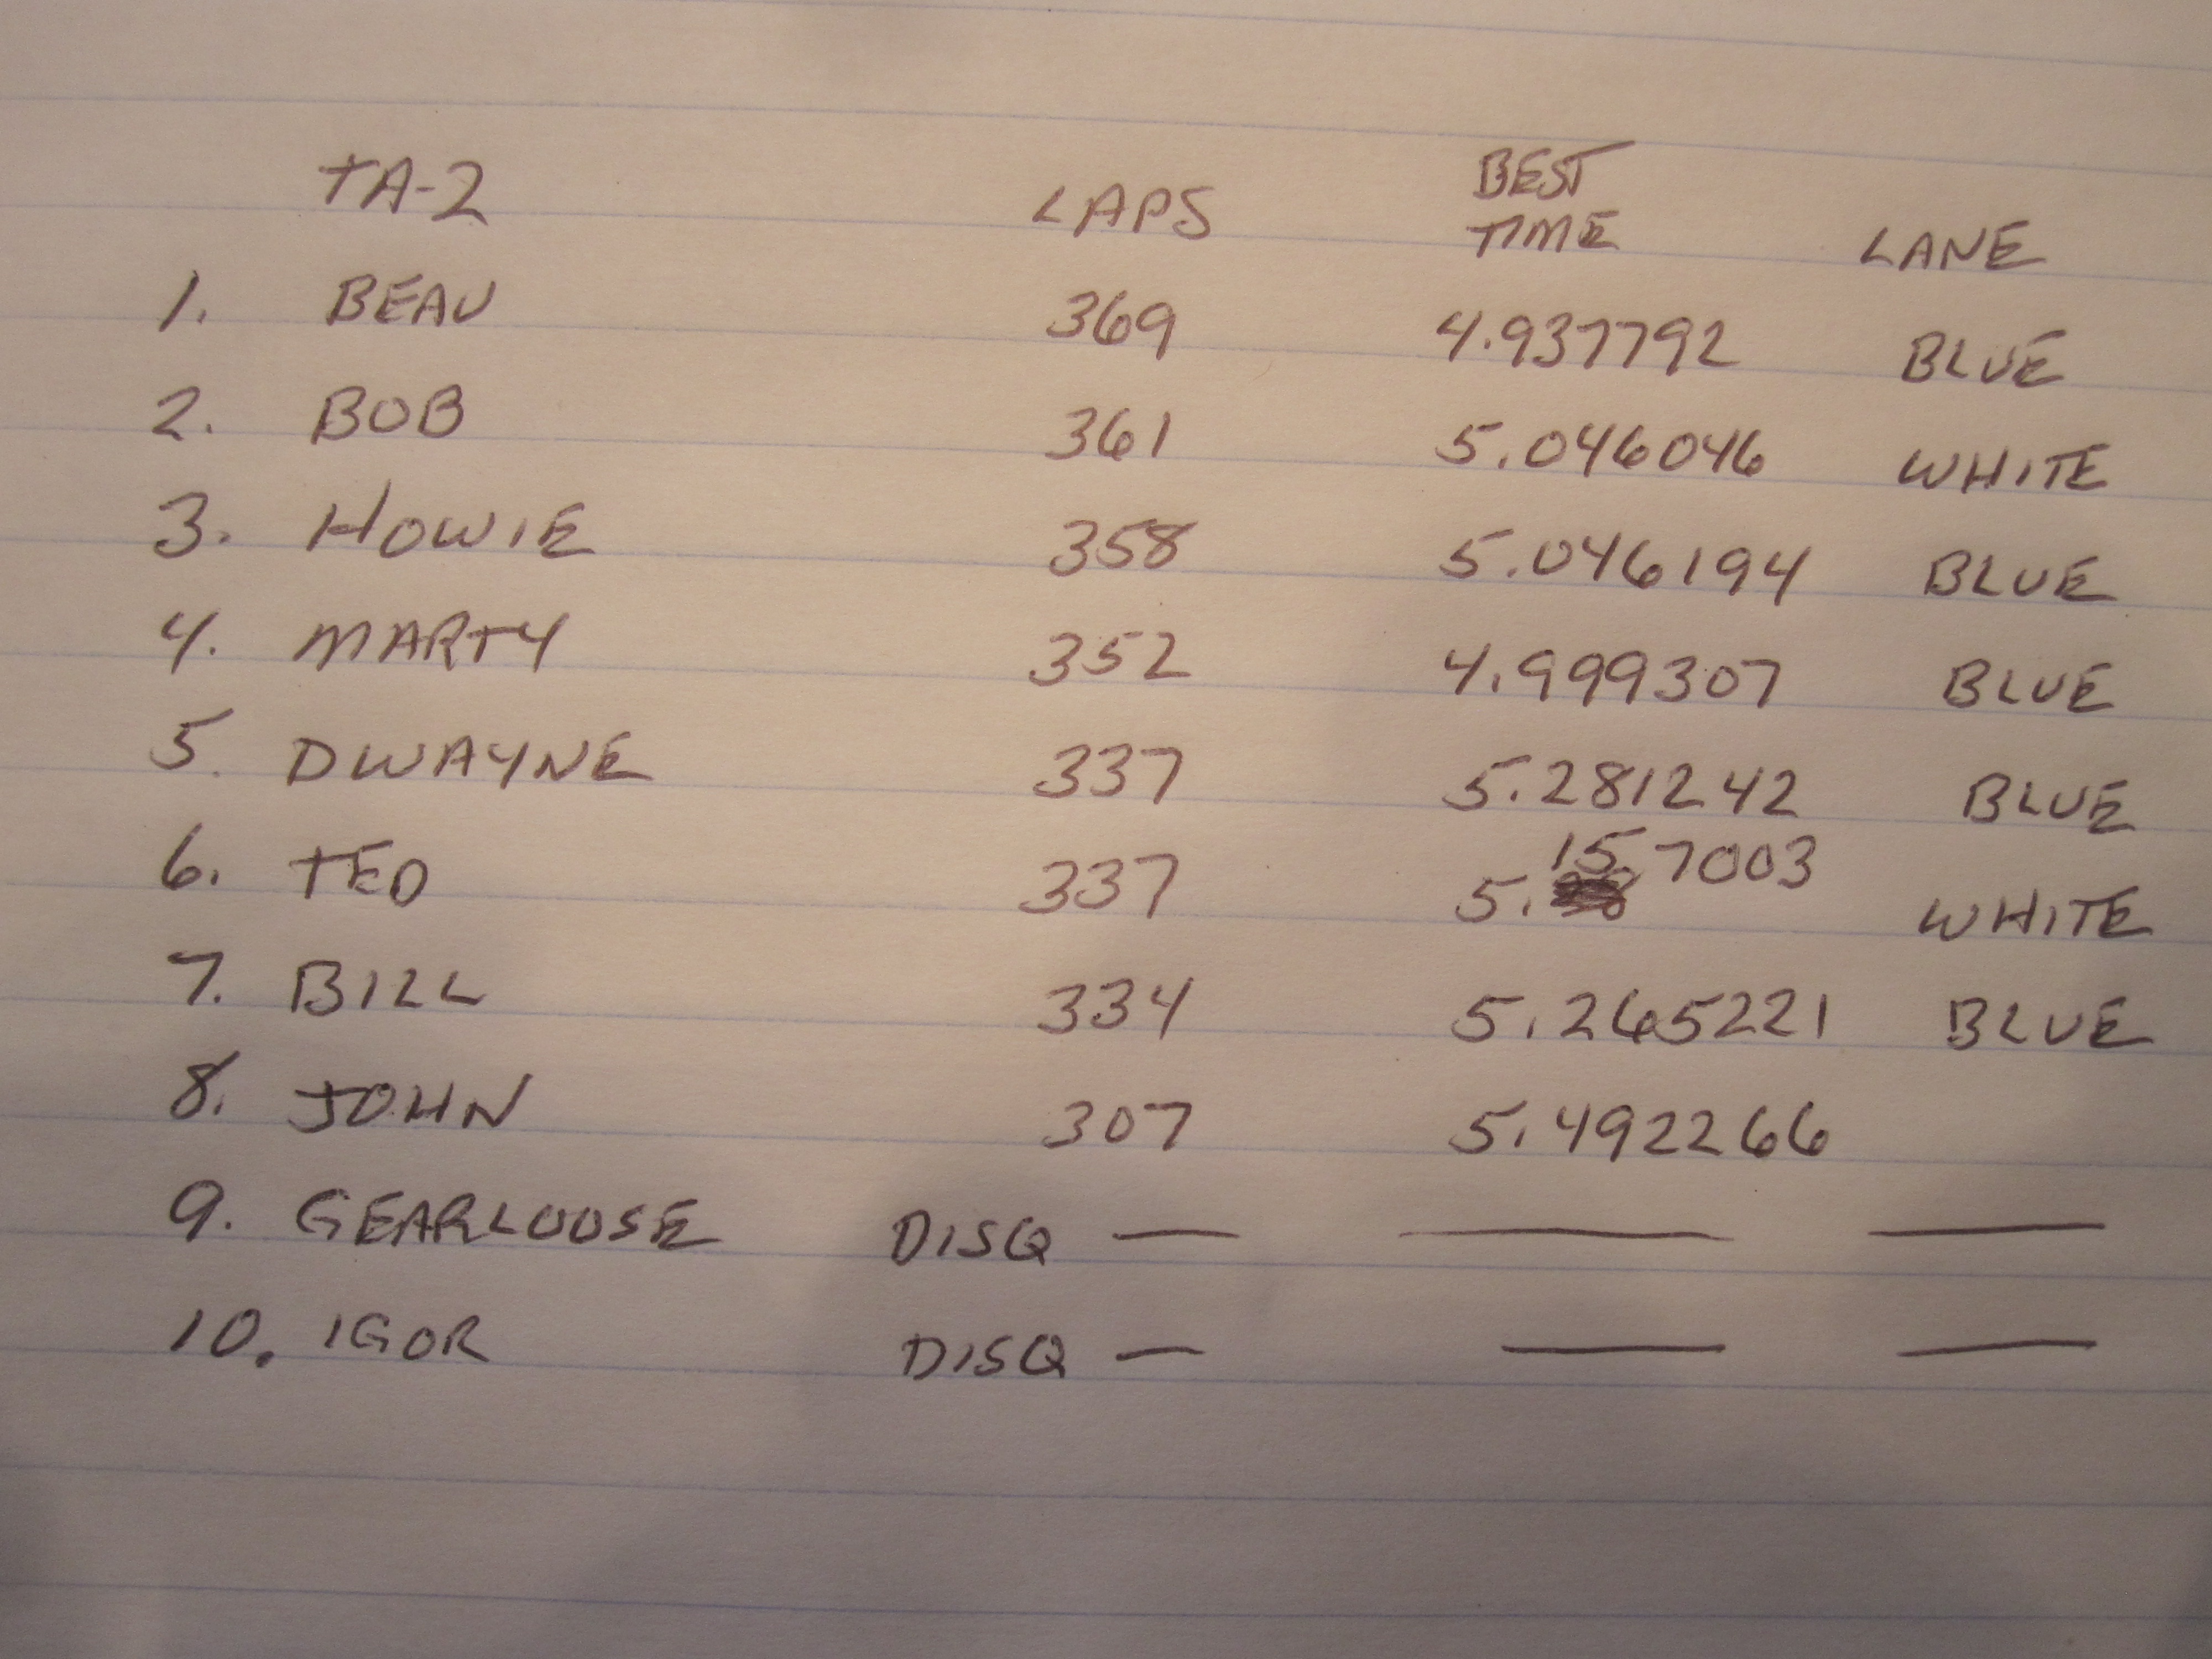 TA-2 LAPS BEST TIME LANE
1. BEAU 369 4.937792 BLUE
2. BOB 361 5.046046 WHITE
3. HOWIE 358 5.046194 BLUE
4. MARTY 352 4.999307 BLUE
5. DWAYNE 337 5.281242 BLUE
6. TED 337 5.157003 WHITE
7. BILL 334 5.265221 BLUE
8. JOHN 307 5.492266
9. GEARLOOSE DISQ — — —
10. IGOR DISQ — — —